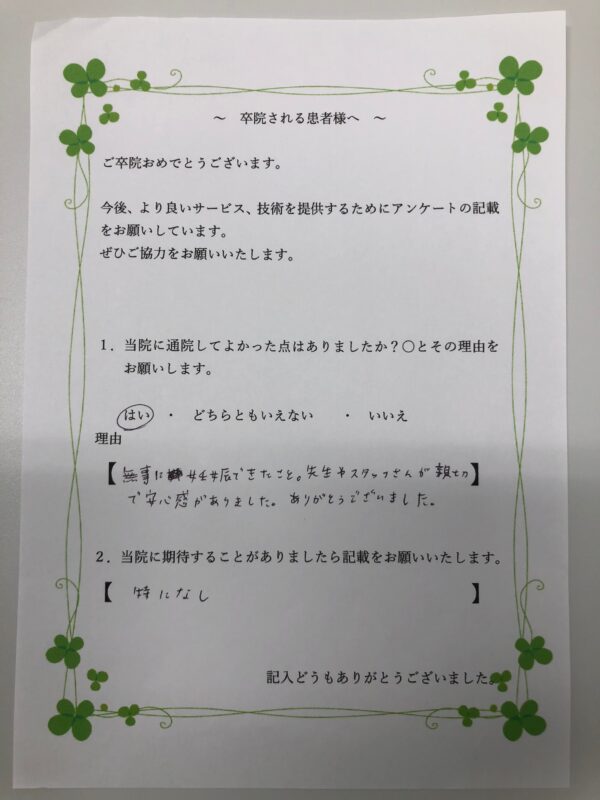 ～　卒院される患者様へ　～
ご卒院おめでとうございます。
今後、より良いサービス、技術を提供するためにアンケートの記載
をお願いしています。
ぜひご協力をお願いいたします。
１．当院に通院してよかった点はありましたか？〇とその理由を
お願いします。
はい　・　どちらともいえない　　・　いいえ
理由
【無事に妊娠できたこと。先生やスタッフさんが親切】
で安心感がありました。ありがとうございました。
２．当院に期待することがありましたら記載をお願いいたします。
【　特になし　】
記入どうもありがとうございました。